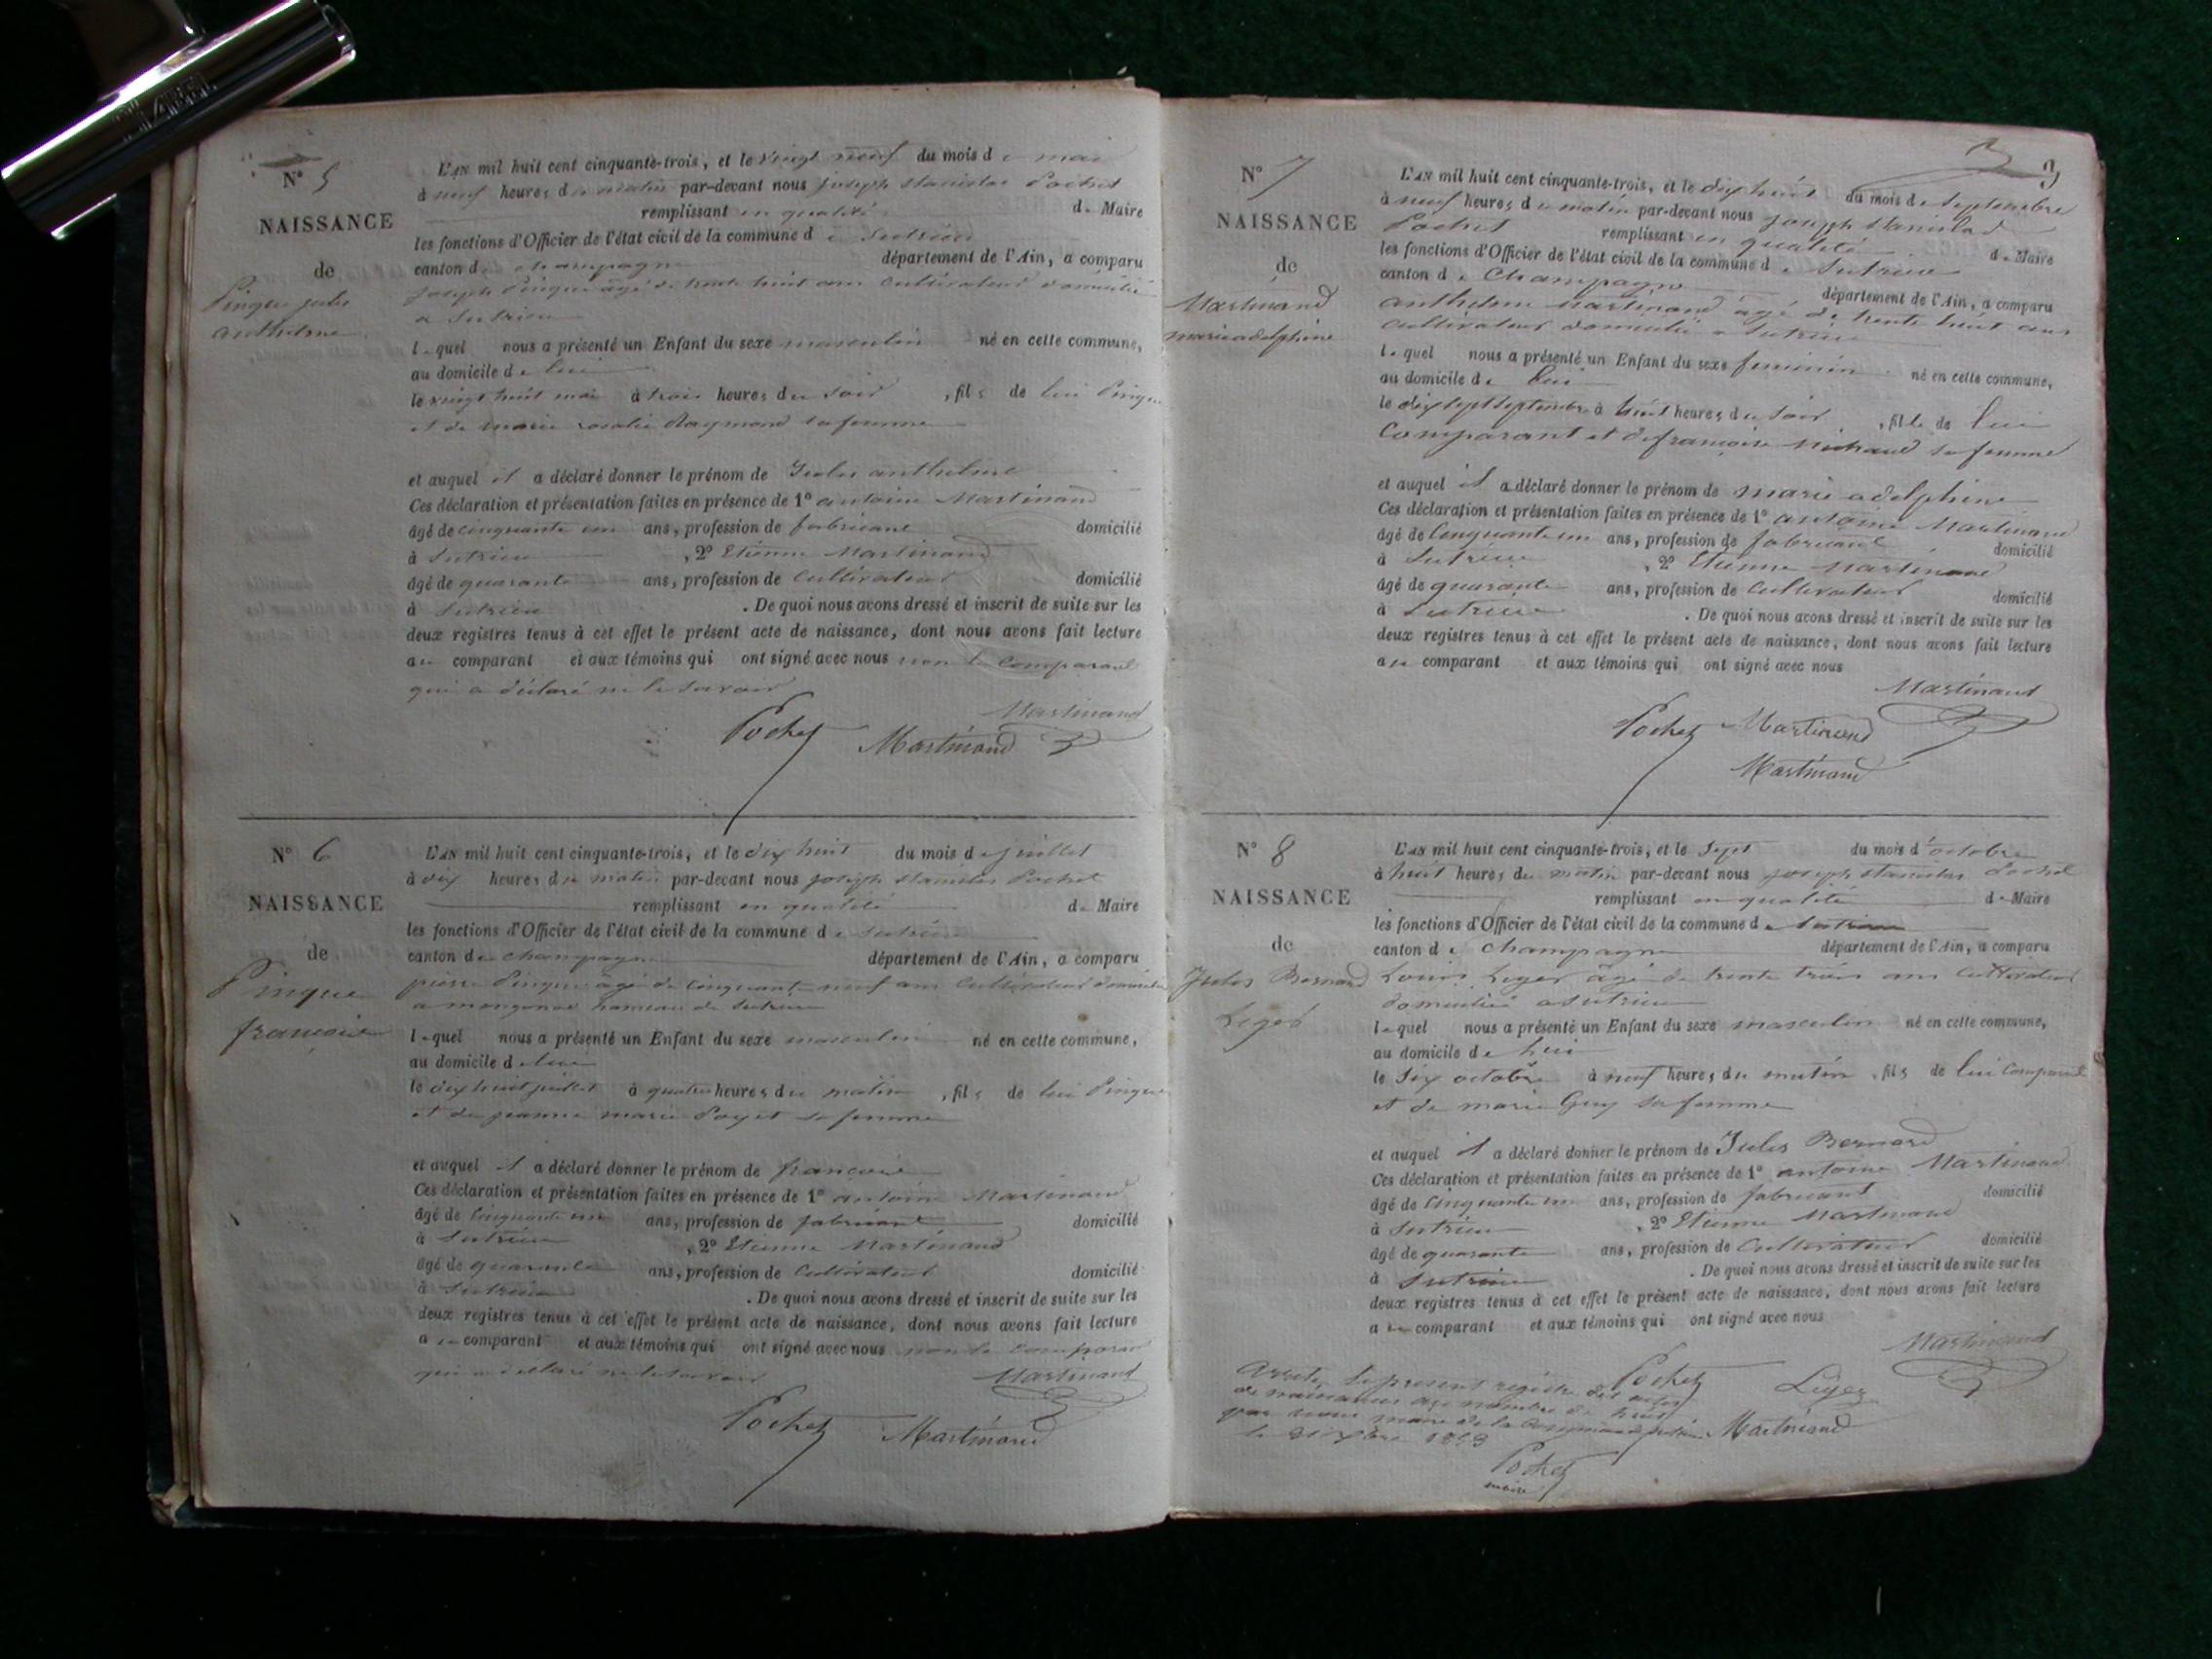 N° 5
NAISSANCE
de
Pingue jules
anthelme
L'AN mil huit cent cinquante-trois, et le vingt neuf du mois de mai
à neuf heures du matin par-devant nous joseph stanislas Pochet
remplissant en qualité de Maire
les fonctions d'Officier de l'état civil de la commune de Sutrieu
canton de champagne département de l'Ain, a comparu
joseph Pingue âgé de trente huit ans cultivateur domicilié
a Sutrieu
lequel nous a présenté un Enfant du sexe masculin né en cette commune,
au domicile de lui
le vingt huit mai à trois heures du soir, fils de lui Pingue
et de marie rosalie Raymond sa femme
et auquel il a déclaré donner le prénom de Jules anthelme
Ces déclaration et présentation faites en présence de 1° antoine Martinand
âgé de cinquante un ans, profession de fabricant domicilié
à Sutrieu, 2° Etienne Martinand
âgé de quarante ans, profession de cultivateur domicilié
à Sutrieu. De quoi nous avons dressé et inscrit de suite sur les
deux registres tenus à cet effet le présent acte de naissance, dont nous avons fait lecture
au comparant et aux témoins qui ont signé avec nous non le comparant
qui a déclaré ne le savoir
Martinand
Pochet Martinand
N° 6
NAISSANCE
de
Pingue
françois
L'AN mil huit cent cinquante-trois, et le dix huit du mois de juillet
à dix heures du matin par-devant nous joseph stanislas Pochet
remplissant en qualité de Maire
les fonctions d'Officier de l'état civil de la commune de Sutrieu
canton de champagne département de l'Ain, a comparu
pierre Pingue âgé de cinquante neuf ans cultivateur domicilié
a hameau de Sutrieu
lequel nous a présenté un Enfant du sexe masculin né en cette commune,
au domicile de lui
le dix huit juillet à quatre heures du matin, fils de lui Pingue
et de jeanne marie Poyet sa femme
et auquel il a déclaré donner le prénom de françois
Ces déclaration et présentation faites en présence de 1° antoine Martinand
âgé de cinquante un ans, profession de fabricant domicilié
à Sutrieu, 2° Etienne Martinand
âgé de quarante ans, profession de cultivateur domicilié
à Sutrieu. De quoi nous avons dressé et inscrit de suite sur les
deux registres tenus à cet effet le présent acte de naissance, dont nous avons fait lecture
au comparant et aux témoins qui ont signé avec nous non le comparant
qui a déclaré ne le savoir
Martinand
Pochet Martinand
3 3
N° 7
NAISSANCE
de
Martinand
marie adelphine
L'AN mil huit cent cinquante-trois, et le dix huit du mois de Septembre
à neuf heures du matin par-devant nous joseph stanislas
Pochet remplissant en qualité de Maire
les fonctions d'Officier de l'état civil de la commune de Sutrieu
canton de Champagne département de l'Ain, a comparu
anthelme Martinand âgé de trente huit ans
cultivateur domicilié a Sutrieu
lequel nous a présenté un Enfant du sexe feminin né en cette commune,
au domicile de lui
le dix sept Septembre à huit heures du soir, fille de lui
Comparant et de françoise Michaud sa femme
et auquel il a déclaré donner le prénom de marie adelphine
Ces déclaration et présentation faites en présence de 1° antoine Martinand
âgé de cinquante un ans, profession de fabricant domicilié
à Sutrieu, 2° Etienne Martinand
âgé de quarante ans, profession de cultivateur domicilié
à Sutrieu. De quoi nous avons dressé et inscrit de suite sur les
deux registres tenus à cet effet le présent acte de naissance, dont nous avons fait lecture
au comparant et aux témoins qui ont signé avec nous
Martinand
Pochet Martinand
Martinand
N° 8
NAISSANCE
de
Jules Bernard
Leger
L'AN mil huit cent cinquante-trois, et le Sept du mois d'octobre
à huit heures du matin par-devant nous joseph stanislas Pochet
remplissant en qualité de Maire
les fonctions d'Officier de l'état civil de la commune de Sutrieu
canton de Champagne département de l'Ain, a comparu
Louis Leger âgé de trente trois ans cultivateur
domicilié a Sutrieu
lequel nous a présenté un Enfant du sexe masculin né en cette commune,
au domicile de lui
le Six octobre à neuf heures du matin, fils de lui Comparant
et de marie Guy sa femme
et auquel il a déclaré donner le prénom de Jules Bernard
Ces déclaration et présentation faites en présence de 1° antoine Martinand
âgé de cinquante un ans, profession de fabricant domicilié
à Sutrieu, 2° Etienne Martinand
âgé de quarante ans, profession de cultivateur domicilié
à Sutrieu. De quoi nous avons dressé et inscrit de suite sur les
deux registres tenus à cet effet le présent acte de naissance, dont nous avons fait lecture
au comparant et aux témoins qui ont signé avec nous
Martinand
Pochet Leger
Martinand
Arrêté le present registre des actes
de naissances au nombre de huit
par nous maire de la Commune de Sutrieu
le 31 1853
Pochet
maire